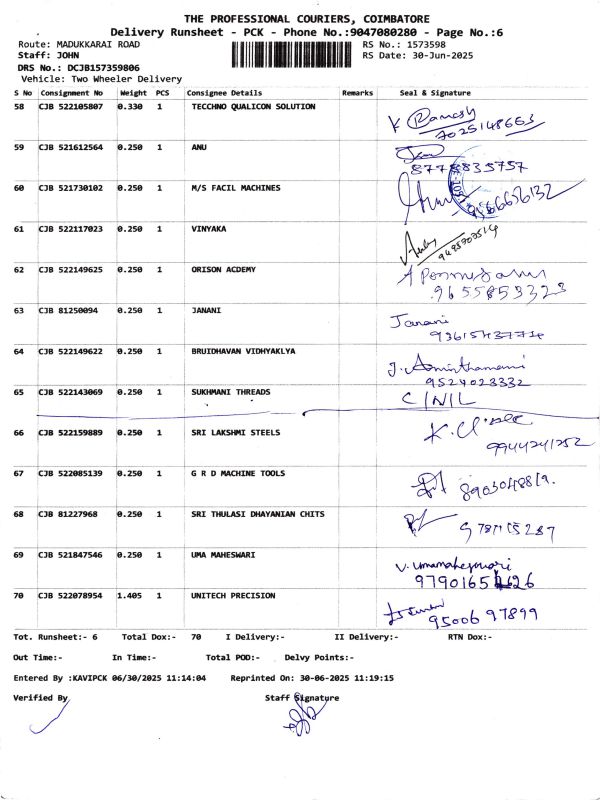 THE PROFESSIONAL COURIERS, COIMBATORE
Delivery Runsheet - PCK - Phone No.:9047080280 - Page No.:6
Route: MADUKKARAI ROAD RS No.: 1573598
Staff: JOHN RS Date: 30-Jun-2025
DRS No.: DCJB157359806
Vehicle: Two Wheeler Delivery
S No Consignment No Weight PCS Consignee Details Remarks Seal & Signature
58 CJB 522105807 0.330 1 TECCHNO QUALICON SOLUTION K Ramesh
7025148663
59 CJB 521612564 0.250 1 ANU
8778835757
60 CJB 521730102 0.250 1 M/S FACIL MACHINES
61 CJB 522117023 0.250 1 VINYAKA
62 CJB 522149625 0.250 1 ORISON ACDEMY
9655853323
63 CJB 81250094 0.250 1 JANANI Janani
64 CJB 522149622 0.250 1 BRUIDHAVAN VIDHYAKLYA
9524023332
65 CJB 522143069 0.250 1 SUKHMANI THREADS C/NIL
66 CJB 522159889 0.250 1 SRI LAKSHMI STEELS
9944241252
67 CJB 522085139 0.250 1 G R D MACHINE TOOLS
68 CJB 81227968 0.250 1 SRI THULASI DHAYANIAN CHITS
69 CJB 521847546 0.250 1 UMA MAHESWARI V. Umamaheswari
70 CJB 522078954 1.405 1 UNITECH PRECISION
95006 97899
Tot. Runsheet:- 6 Total Dox:- 70 I Delivery:- II Delivery:- RTN Dox:-
Out Time:- In Time:- Total POD:- Delvy Points:-
Entered By :KAVIPCK 06/30/2025 11:14:04 Reprinted On: 30-06-2025 11:19:15
Verified By Staff Signature